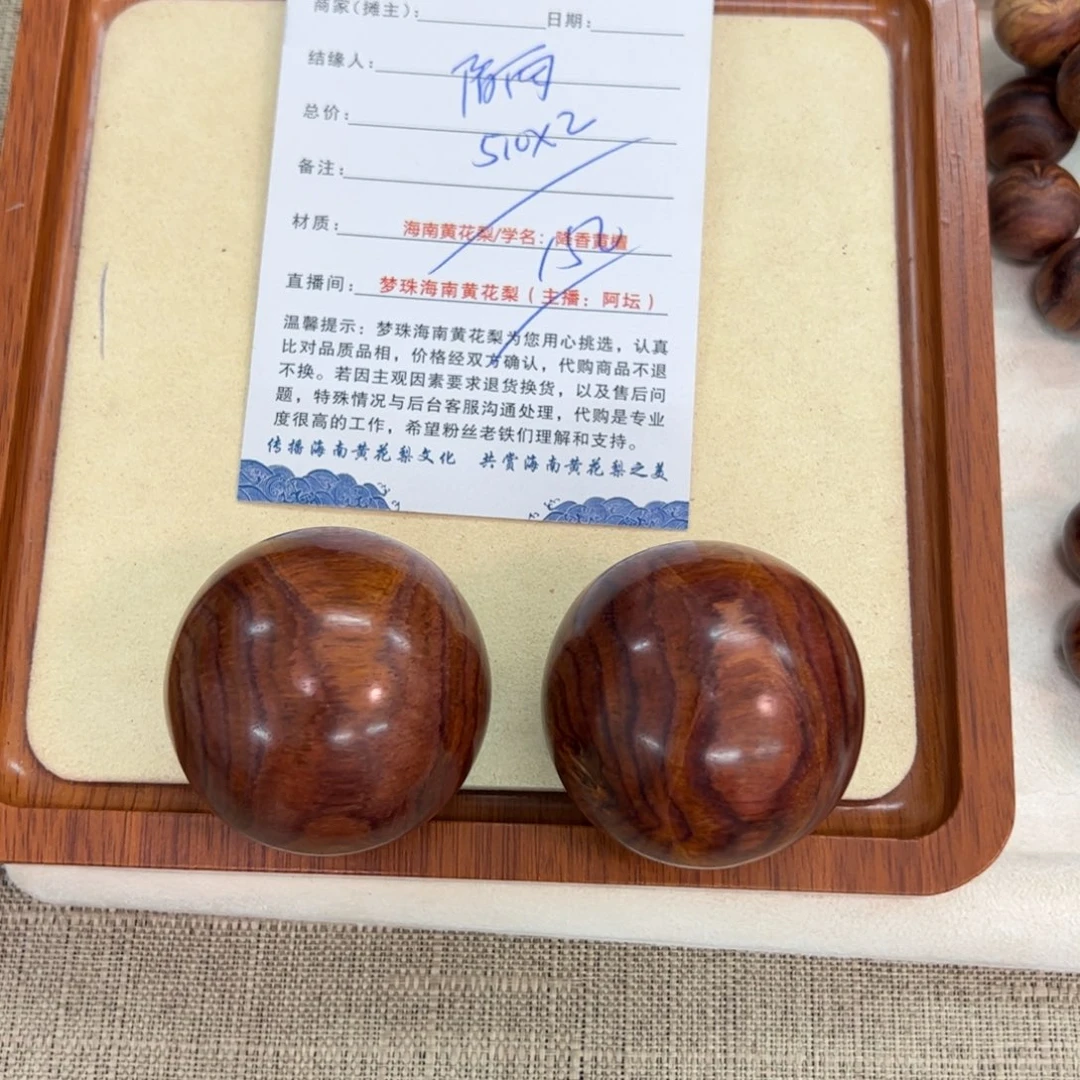 商家(摊主): 日期:
结缘人:
总价: 510×2
备注:
材质: 海南黄花梨/学名: 降香黄檀
直播间: 梦珠海南黄花梨 ( 主播: 阿坛 )
温馨提示: 梦珠海南黄花梨为您用心挑选, 认真
比对品质品相, 价格经双方确认, 代购商品不退
不换。若因主观因素要求退货换货, 以及售后问
题, 特殊情况与后台客服沟通处理, 代购是专业
度很高的工作, 希望粉丝老铁们理解和支持。
传播海南黄花梨文化 共赏海南黄花梨之美